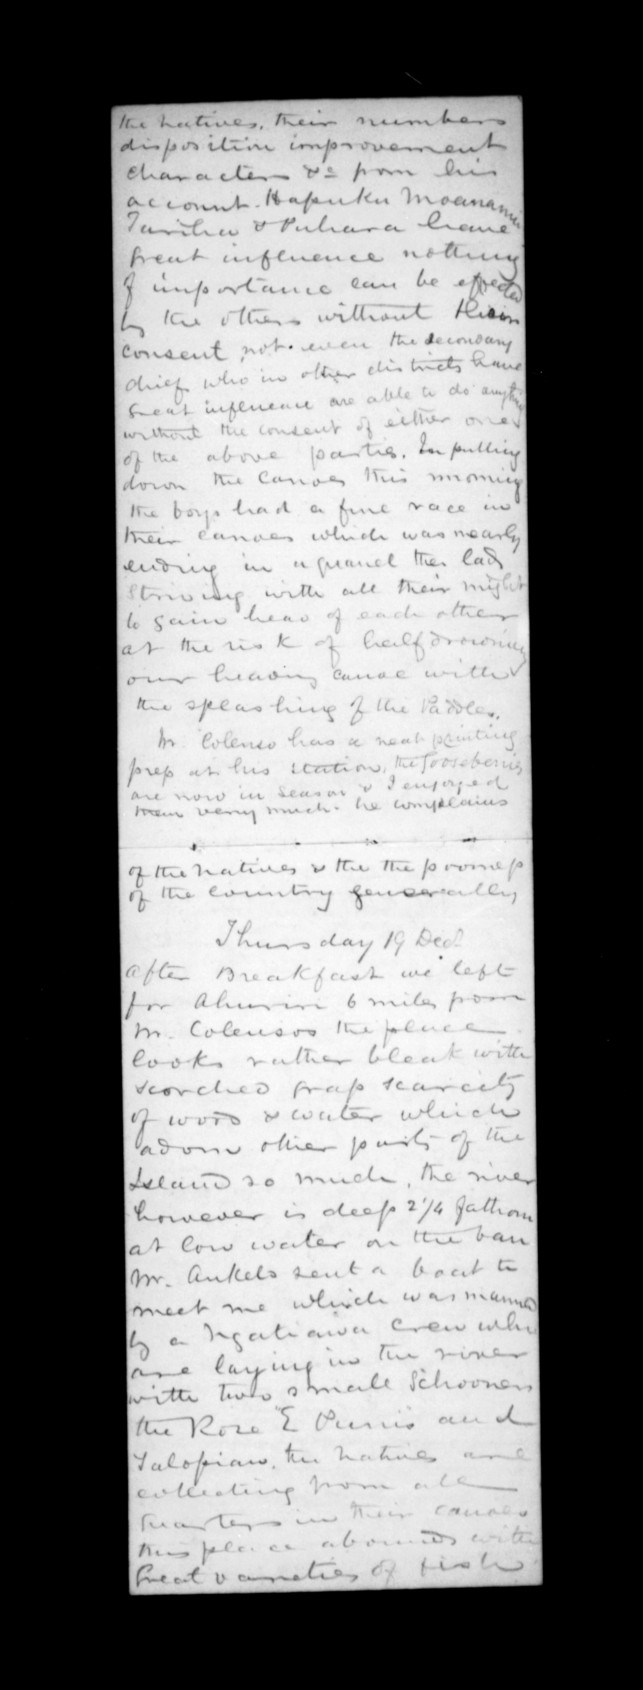 the natives, their numbers
disposition improvement
character &c from his
account. Hapuku Moananui
Tariha & Puhara have
great influence nothing
of importance can be effected
by the others without their
consent, not even the secondary
chiefs who in other districts have
great influence are able to do anything
without the consent of either one
of the above parties. In pulling
down the canoes this morning
the boys had a fine race in
their canoes which was nearly
ending in a quarrel the lads
striving with all their might
to gain head of each other
at the risk of half drowning
our heavy canoe with
the splashing of the Paddles.
Mr Colenso has a neat printing
press at his station, the Gooseberries
are now in season & I enjoyed
them very much. he complains
of the natives & the the poorness
of the country generally
Thursday 19 Decr
After Breakfast we left
for Ahuriri 6 miles from
Mr. Colensos the place
looks rather bleak with
scorched grass scarcity
of wood & water which
adorn other parts of the
Island so much, the river
however is deep 2 1/4 fathom
at low water on the bar
Mr. Ankels sent a boat to
meet me which was manned
by a Ngatiawa crew who
are laying in the river
with two small Schooners
the Rose E and
the natives are
collecting from all
quarters in their canoes
this place abounds with
Great varieties of fish